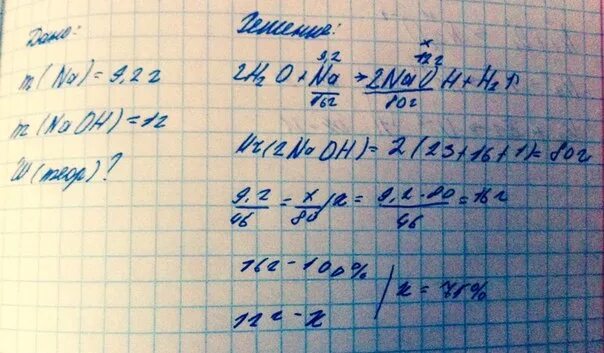 Дано:
m(Na)=9,2г
m(NaOH)=12
W(теор)?
Решение:
9,2 x 12г
2H₂O+Na→2NaOH+H₂↑
46г 80г
Mr(2NaOH)=2(23+16+1)=80г
9,2/46=x/80/x=9,2·80/46=16г
16г-100%
12г-x
/x=75%